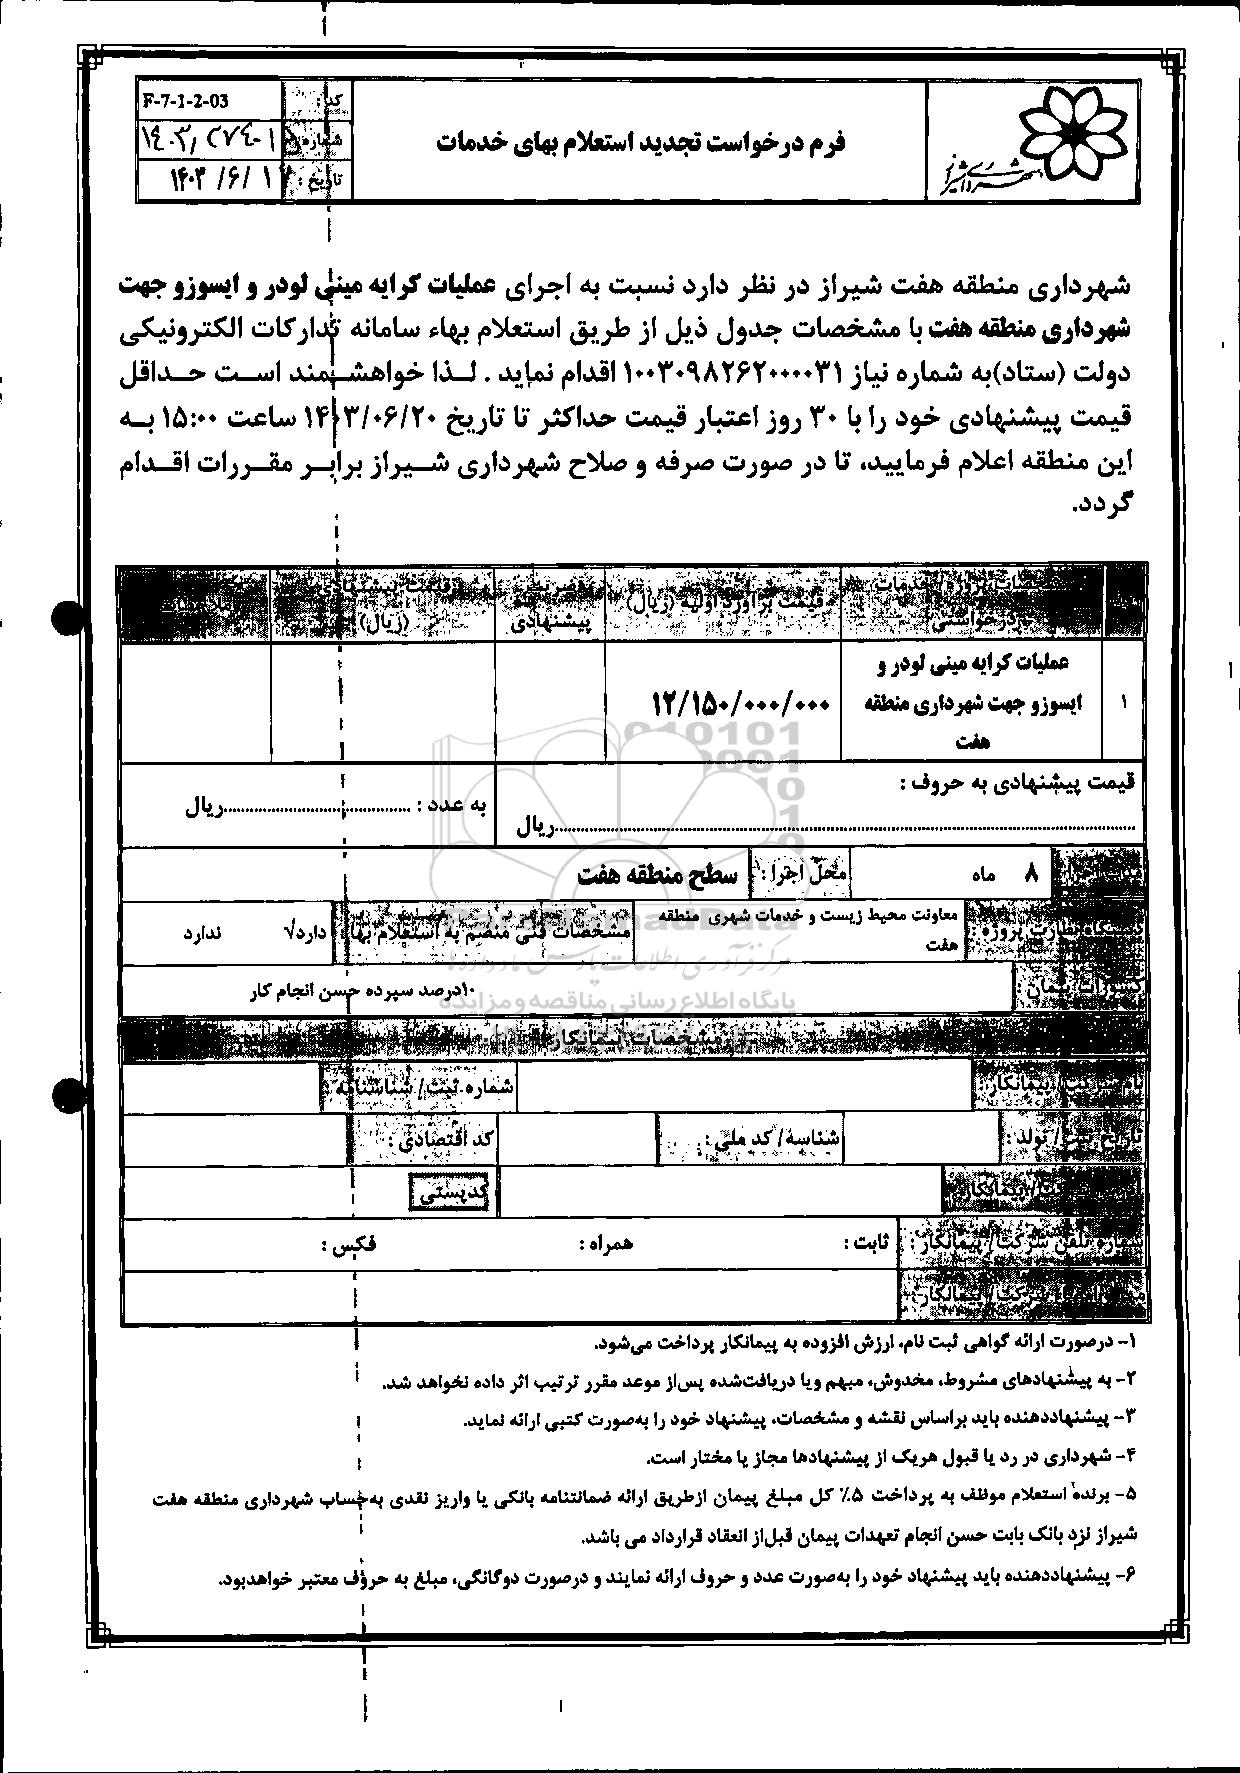 شهرداری شیراز
فرم درخواست تجدید استعلام بهای خدمات
کد: F-7-1-2-03
شماره:
تاریخ: ۱۴۰۳/۶/۱۷
شهرداری منطقه هفت شیراز در نظر دارد نسبت به اجرای عملیات کرایه مینی لودر و ایسوزو جهت
شهرداری منطقه هفت با مشخصات جدول ذیل از طریق استعلام بهاء سامانه تدارکات الکترونیکی
دولت (ستاد)به شماره نیاز ۱۰۰۳۰۹۸۲۶۲۰۰۰۰۳۱ اقدام نماید . لـذا خواهشـمند اسـت حـداقل
قیمت پیشنهادی خود را با ۳۰ روز اعتبار قیمت حداکثر تا تاریخ ۱۴۰۳/۰۶/۲۰ ساعت ۱۵:۰۰ بـه
این منطقه اعلام فرمایید، تا در صورت صرفه و صلاح شهرداری شـیراز برابـر مقـررات اقـدام
گردد.
قیمت برآورد اولیه (ریال)
پیشنهادی
قیمت پیشنهادی
(ریال)
درخواستی
۱
عملیات کرایه مینی لودر و
ایسوزو جهت شهرداری منطقه
هفت
۱۲/۱۵۰/۰۰۰/۰۰۰
قیمت پیشنهادی به حروف :
........ریال
به عدد : ........ریال
۸ ماه
محل اجرا :
سطح منطقه هفت
دستگاه نظارت پروژه :
معاونت محیط زیست و خدمات شهری منطقه
هفت
مشخصات فنی منضم به استعلام بها :
دارد√ ندارد
کسورات پیمان :
۱۰درصد سپرده حسن انجام کار
مرکز فرآوری اطلاعات پارس نماد داده ها
پایگاه اطلاع رسانی مناقصه و مزایده
مشخصات پیمانکار
نام شرکت/ پیمانکار :
شماره ثبت/ شناسنامه :
تاریخ ثبت/ تولد :
شناسه/ کد ملی :
کد اقتصادی :
پیمانکار
کدپستی
شماره تلفن شرکت/ پیمانکار :
ثابت : همراه : فکس :
شرکت/ پیمانکار :
۱- درصورت ارائه گواهی ثبت نام، ارزش افزوده به پیمانکار پرداخت می‌شود.
۲- به پیشنهادهای مشروط، مخدوش، مبهم ویا دریافت‌شده پس‌از موعد مقرر ترتیب اثر داده نخواهد شد.
۳- پیشنهاددهنده باید براساس نقشه و مشخصات، پیشنهاد خود را به‌صورت کتبی ارائه نماید.
۴- شهرداری در رد یا قبول هریک از پیشنهادها مجاز یا مختار است.
۵- برنده استعلام موظف به پرداخت ۵٪ کل مبلغ پیمان ازطریق ارائه ضمانتنامه بانکی یا واریز نقدی به‌حساب شهرداری منطقه هفت
شیراز نزد بانک بابت حسن انجام تعهدات پیمان قبل‌از انعقاد قرارداد می باشد.
۶- پیشنهاددهنده باید پیشنهاد خود را به‌صورت عدد و حروف ارائه نمایند و درصورت دوگانگی، مبلغ به حروف معتبر خواهدبود.